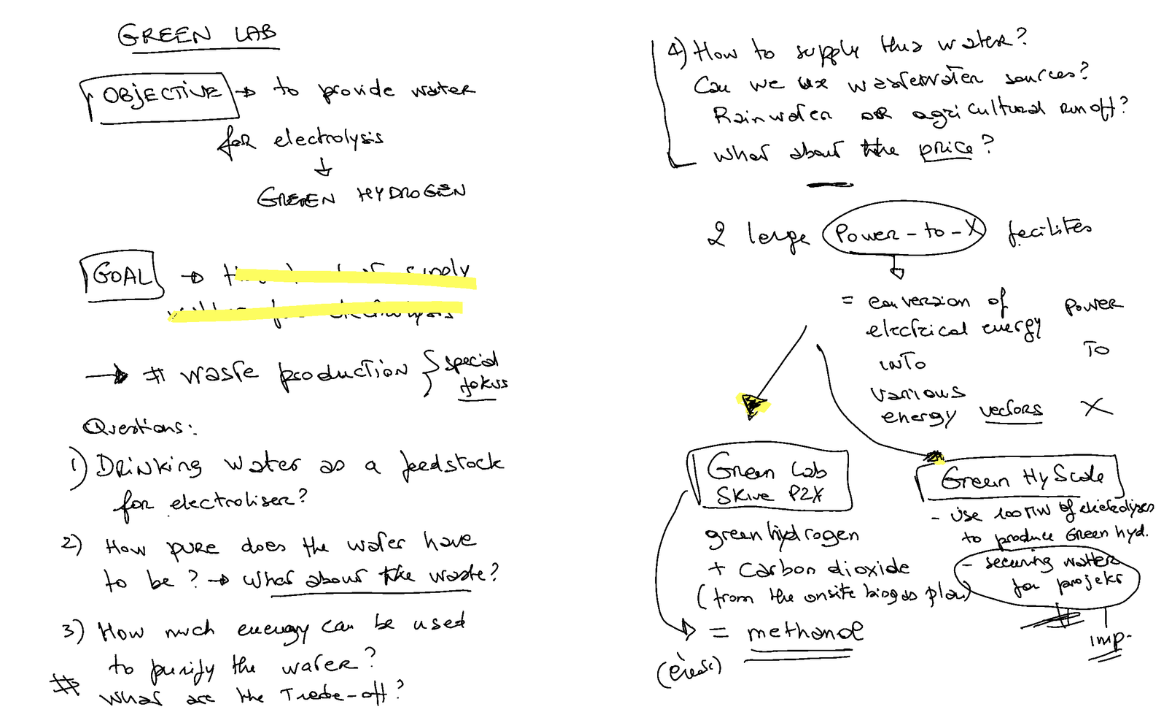 GREEN LAB
OBJECTIVE → to provide water
for electrolysis
↓
GREEN HYDROGEN
GOAL →
→ # waste production } special
fokus
Questions:
1) Drinking water as a feedstock
for electroliser?
2) How pure does the water have
to be? → what about the waste?
3) How much energy can be used
to purify the water?
# What are the Trade-off?
4) How to supply this water?
Can we use wastewater sources?
Rainwater or agricultural runoff?
What about the price?
2 large Power-to-X facilites
= conversion of
electrical energy
into
various
energy vectors
Power
TO
X
Green Lab
Skive P2X
green hydrogen
+ Carbon dioxide
(from the onsite biogas plan)
= methanol
Green HyScale
- Use 100MW of electrolyses
to produce Green hyd.
- securing water
for projekt
imp.